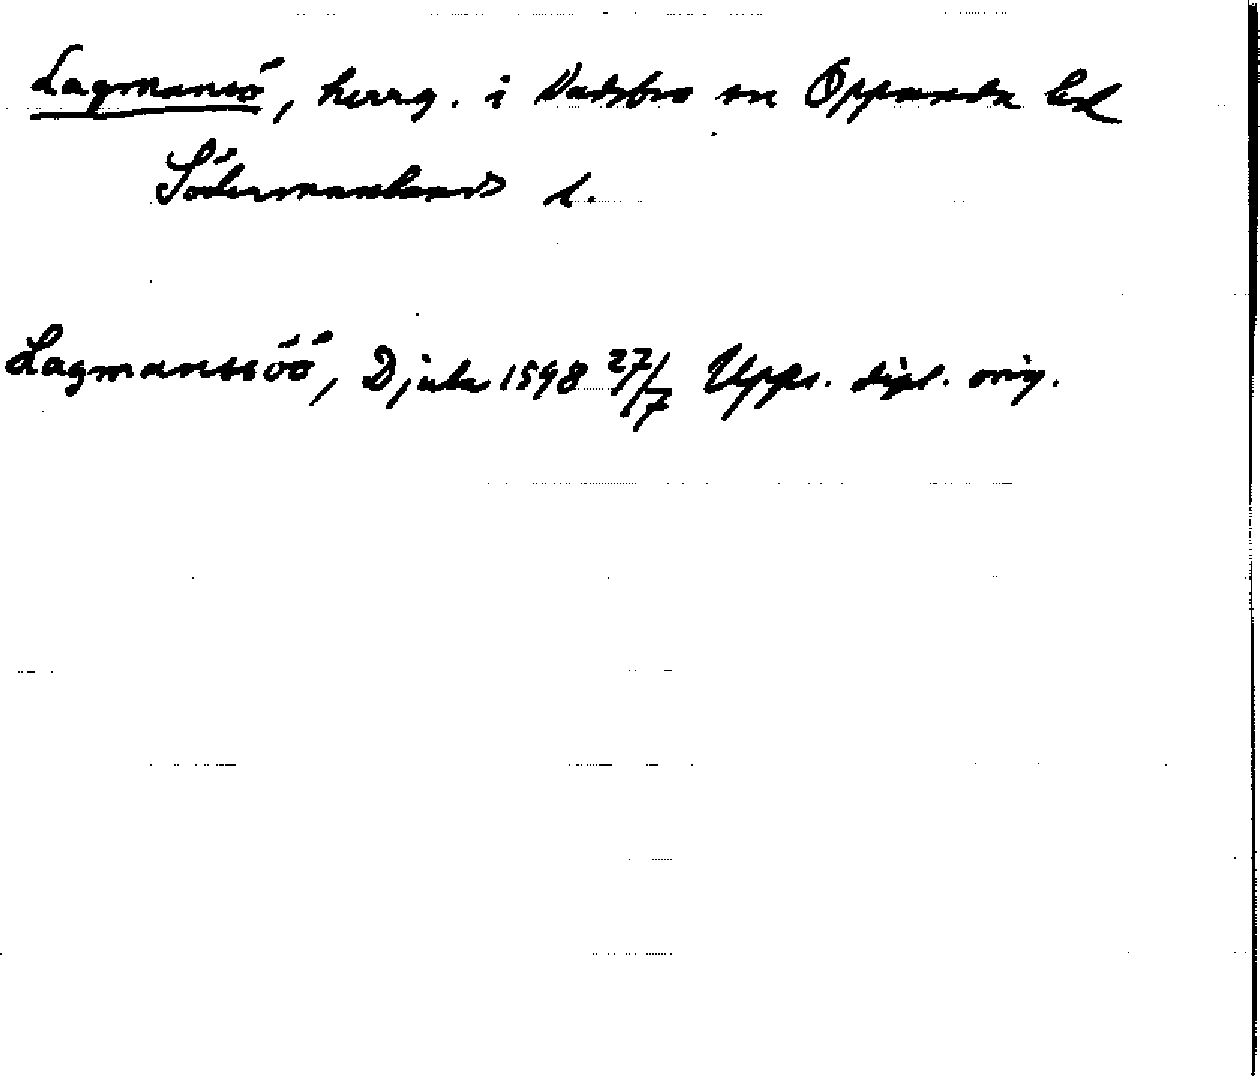 Lagmansö, herrg. i Vadsbro sn Oppunda hd
Södermanlands l.
Lagmanssöö, Djula 1598 27/7 Upps. dipl. orig.